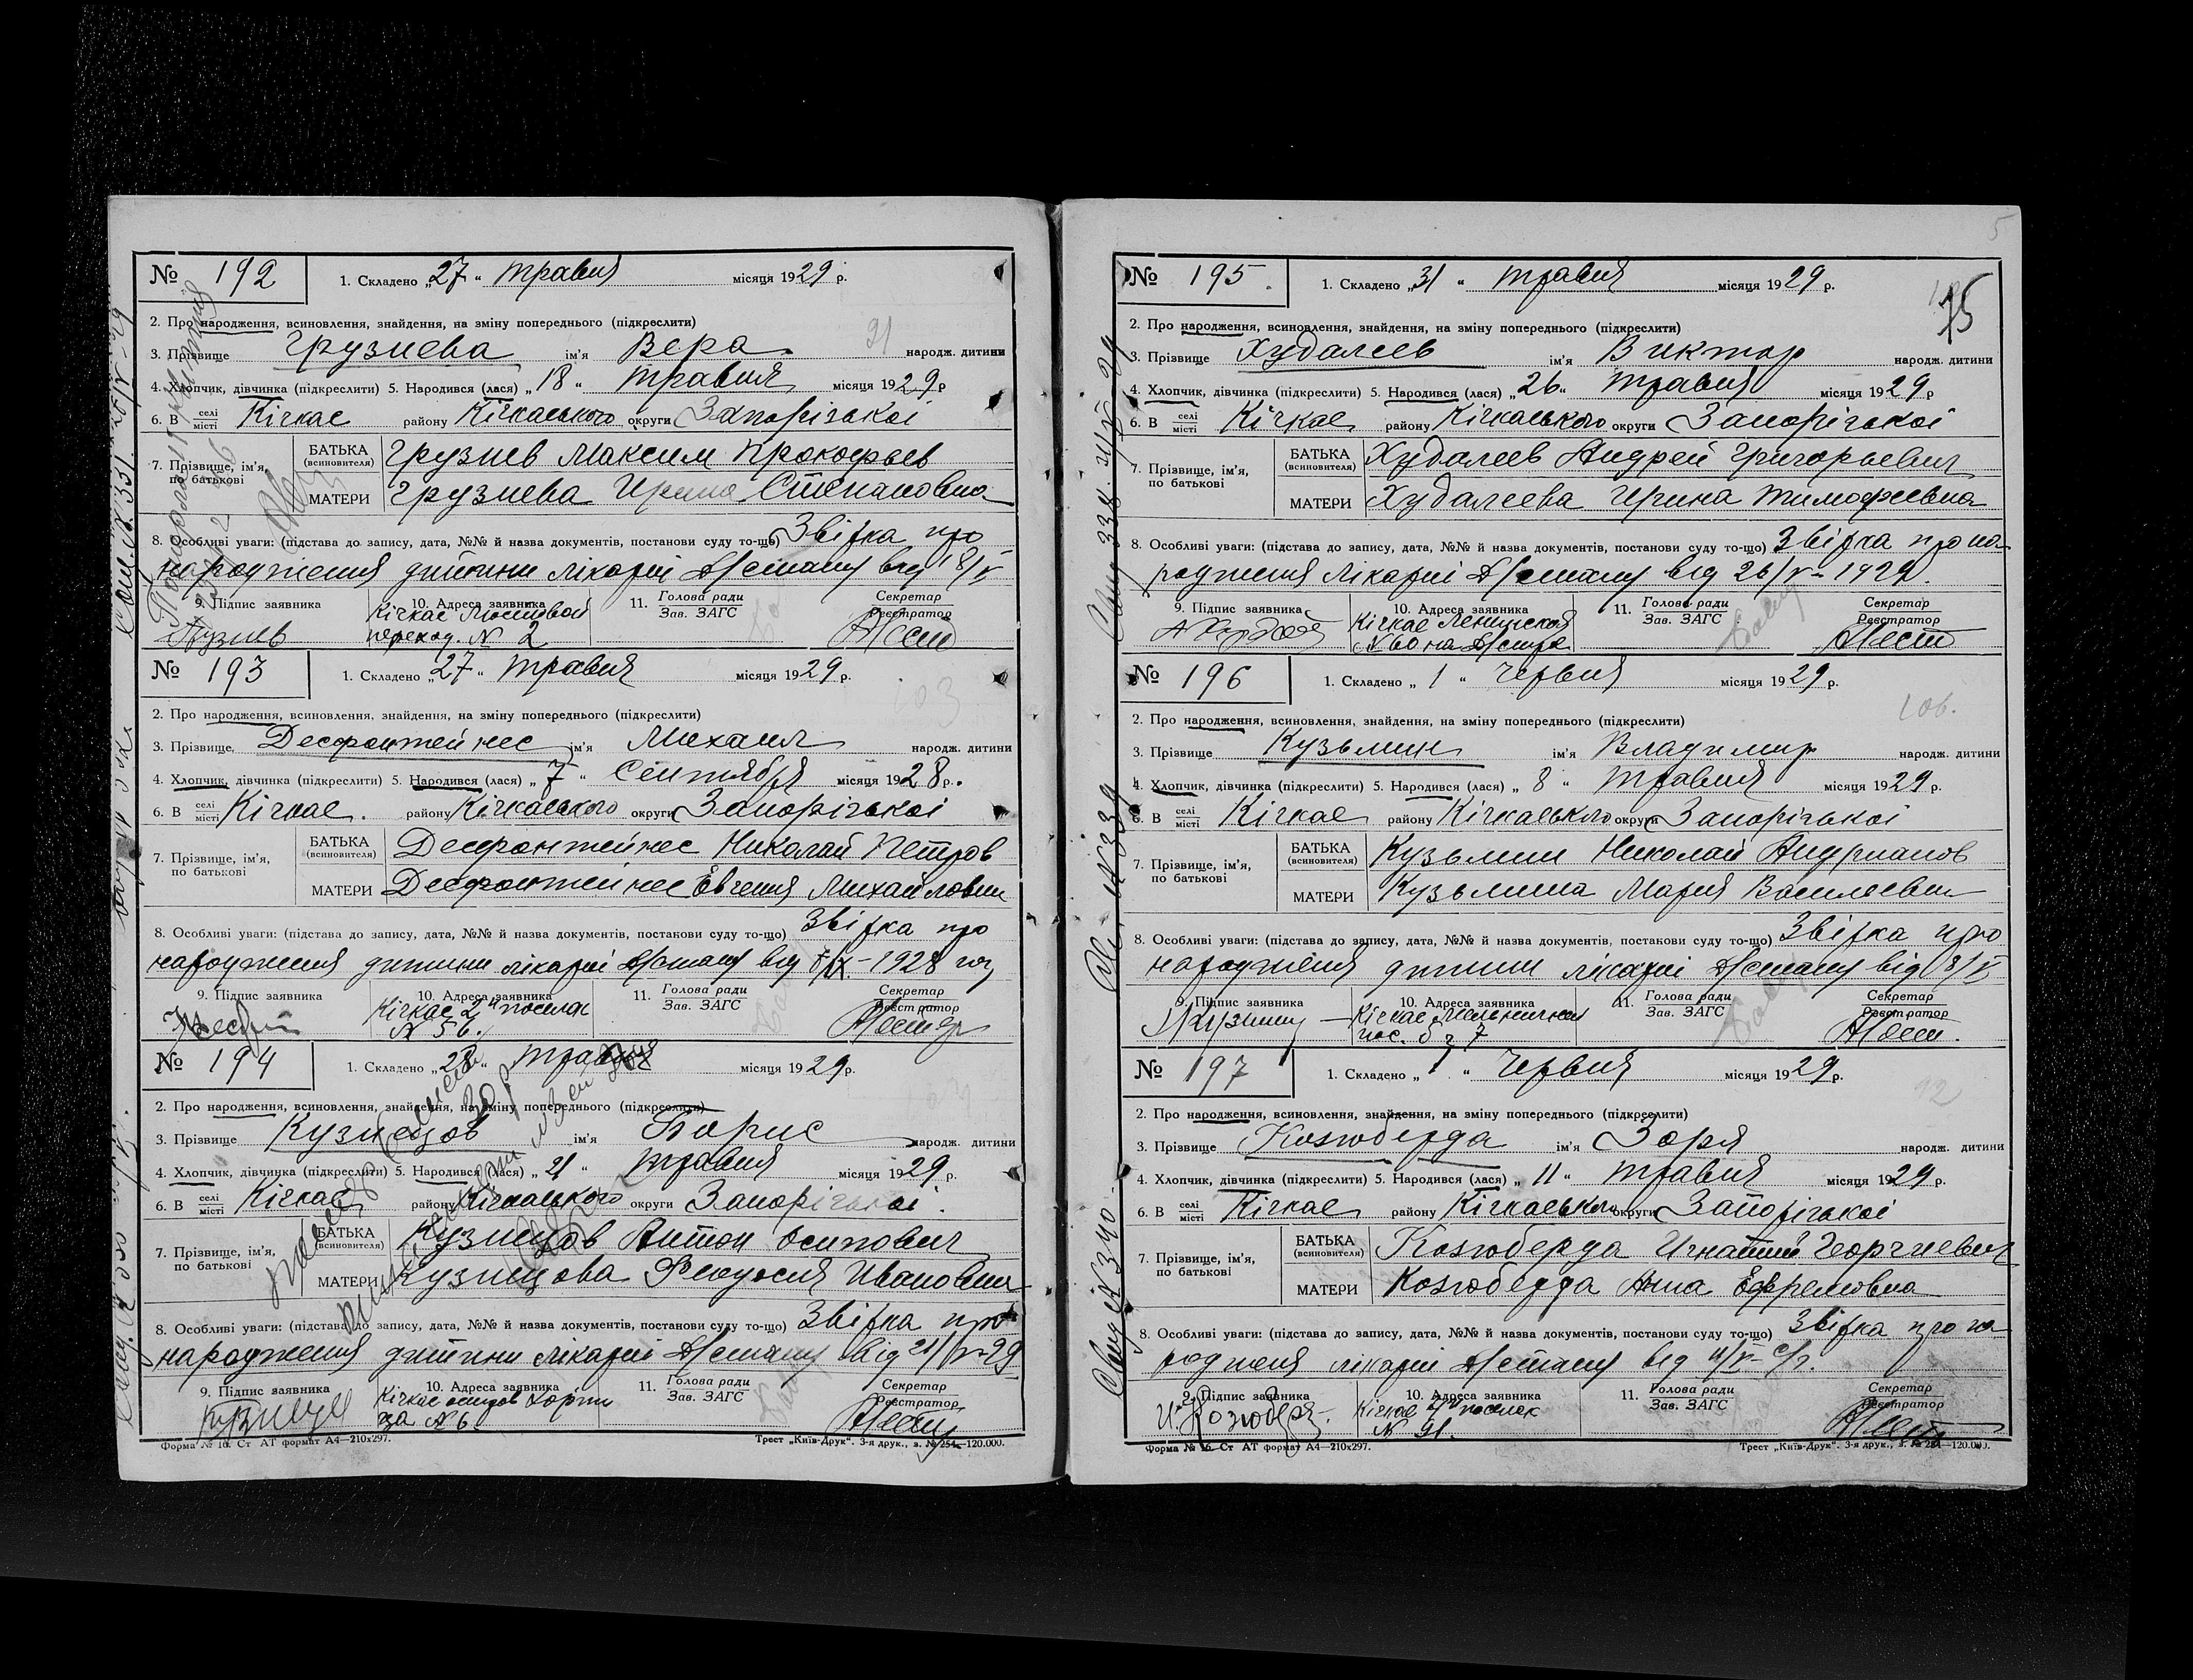 № 192 1. Складено „27“ травня місяця 1929 р.
2. Про народження, всиновлення, знайдення, на зміну попереднього (підкреслити)
3. Прізвище Грузнева ім'я Вера народж. дитини
4. Хлопчик, дівчинка (підкреслити) 5. Народився (лася) „18“ травня місяця 1929 р
6. В селі місті Кічкас району Кічкаського округи Запорізької
7. Прізвище, ім'я, по батькові
БАТЬКА (всиновителя) Грузнев Максим Прокофьев
МАТЕРИ Грузнева Ирина Степановна
8. Особливі уваги: (підстава до запису, дата, №№ й назва документів, постанови суду то-що) Звістка про
народження дитини лікарні Дніпрельстану від 18/V
9. Підпис заявника 10. Адреса заявника 11. Голова ради Зав. ЗАГС Секретар Реєстратор
Кічкас Мостовой
переход. № 2
№ 193 1. Складено „27“ травня місяця 1929 р.
2. Про народження, всиновлення, знайдення, на зміну попереднього (підкреслити)
3. Прізвище Десфонтейнес ім'я Михаил народж. дитини
4. Хлопчик, дівчинка (підкреслити) 5. Народився (лася) „7“ Сентября місяця 1928 р.
6. В селі місті Кічкас. району Кічкаського округи Запорізької
7. Прізвище, ім'я, по батькові
БАТЬКА (всиновителя) Десфонтейнес Николай Петров
МАТЕРИ Десфонтейнес Евгения Михайловна
8. Особливі уваги: (підстава до запису, дата, №№ й назва документів, постанови суду то-що) Звістка про
народження дитини лікарні від /IX-1928
9. Підпис заявника 10. Адреса заявника 11. Голова ради Зав. ЗАГС Секретар Реєстратор
Кічкас 2й поселок
№ 56.
№ 194 1. Складено „28“ травня місяця 1929 р.
2. Про народження, всиновлення, знайдення, на зміну попереднього (підкреслити)
3. Прізвище Кузнецов ім'я Борис народж. дитини
4. Хлопчик, дівчинка (підкреслити) 5. Народився (лася) „21“ травня місяця 1929 р.
6. В селі місті Кічкас району Кічкаського округи Запорізької.
7. Прізвище, ім'я, по батькові
БАТЬКА (всиновителя) Кузнецов Антон Осипович
МАТЕРИ Кузнецова Феодосия Ивановна
8. Особливі уваги: (підстава до запису, дата, №№ й назва документів, постанови суду то-що) Звістка про
народження дитини лікарні від 21/V-29
9. Підпис заявника 10. Адреса заявника 11. Голова ради Зав. ЗАГС Секретар Реєстратор
Кічкас остров Хорти
ца № 6.
Форма № 16. Ст АТ формат А4—210х297. Трест „Київ-Друк“. 3-я друк., з. № 254—120.000.
75
№ 195. 1. Складено „31“ травня місяця 1929 р.
2. Про народження, всиновлення, знайдення, на зміну попереднього (підкреслити)
3. Прізвище Худалеев ім'я Виктор народж. дитини
4. Хлопчик, дівчинка (підкреслити) 5. Народився (лася) „26“ травня місяця 1929 р
6. В селі місті Кічкас району Кічкаського округи Запорізької
7. Прізвище, ім'я, по батькові
БАТЬКА (всиновителя) Худалеев Андрей Григорьевич
МАТЕРИ Худалеева Ирина Тимофеевна
8. Особливі уваги: (підстава до запису, дата, №№ й назва документів, постанови суду то-що) Звістка про на-
родження лікарні від 26/V-1929.
9. Підпис заявника 10. Адреса заявника 11. Голова ради Зав. ЗАГС Секретар Реєстратор
Кічкас Ленинская
№ 60
№ 196 1. Складено „1“ червня місяця 1929 р.
106.
2. Про народження, всиновлення, знайдення, на зміну попереднього (підкреслити)
3. Прізвище Кузьмин ім'я Владимир народж. дитини
4. Хлопчик, дівчинка (підкреслити) 5. Народився (лася) „8“ травня місяця 1929 р.
6. В селі місті Кічкас району Кічкаського округи Запорізької
7. Прізвище, ім'я, по батькові
БАТЬКА (всиновителя) Кузьмин Николай Андрианов
МАТЕРИ Кузьмина Мария Васильевна
8. Особливі уваги: (підстава до запису, дата, №№ й назва документів, постанови суду то-що) Звістка про
народження дитини лікарні від 8/V
9. Підпис заявника 10. Адреса заявника 11. Голова ради Зав. ЗАГС Секретар Реєстратор
Кічкас
№ 197 1. Складено „1“ червня місяця 1929 р.
2. Про народження, всиновлення, знайдення, на зміну попереднього (підкреслити)
3. Прізвище Козюберда ім'я Зоря народж. дитини
4. Хлопчик, дівчинка (підкреслити) 5. Народився (лася) „11“ травня місяця 1929 р.
6. В селі місті Кічкас району Кічкаського округи Запорізької
7. Прізвище, ім'я, по батькові
БАТЬКА (всиновителя) Козюберда Игнатий Георгиевич
МАТЕРИ Козюберда Анна Ефремовна
8. Особливі уваги: (підстава до запису, дата, №№ й назва документів, постанови суду то-що) Звістка про на-
родженя лікарні від 11/V- с/р.
9. Підпис заявника 10. Адреса заявника 11. Голова ради Зав. ЗАГС Секретар Реєстратор
Кічкас поселок
№ 91.
Форма № 16. Ст АТ формат А4—210х297. Трест „Київ-Друк“. 3-я друк., з. № 254—120.000.